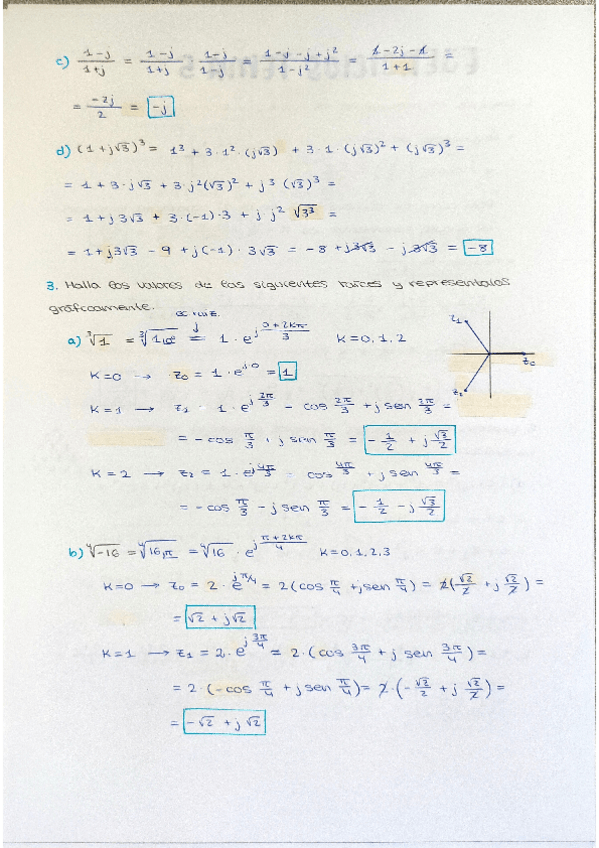 c) (1-j)/(1+j) = (1-j)/(1+j) · (1-j)/(1-j) = (1-j-j+j²)/(1-j²) = (1-2j-1)/(1+1) =
= -2j/2 = -j
d) (1+j√3)³ = 1³ + 3·1²·(j√3) + 3·1·(j√3)² + (j√3)³ =
= 1 + 3·j√3 + 3·j²(√3)² + j³(√3)³ =
= 1 + j3√3 + 3·(-1)·3 + j j² √3³ =
= 1 + j3√3 - 9 + j(-1)·3√3 = -8 + j3√3 - j3√3 = -8
3. Halla los valores de las siguientes raíces y represéntalos
gráficamente.
a) ∛1 = ∛1₀ = 1·e^(j (0+2kπ)/3) k=0,1,2
k=0 → z₀ = 1·e^(j0) = 1
k=1 → z₁ = 1·e^(j 2π/3) = cos 2π/3 + j sen 2π/3 =
= -cos π/3 + j sen π/3 = -1/2 + j √3/2
k=2 → z₂ = 1·e^(j 4π/3) = cos 4π/3 + j sen 4π/3 =
= -cos π/3 - j sen π/3 = -1/2 - j √3/2
z₁
z₀
z₂
b) ∜-16 = ∜16,π = ∜16 · e^(j (π+2kπ)/4) k=0,1,2,3
k=0 → z₀ = 2·e^(j π/4) = 2(cos π/4 + j sen π/4) = 2(√2/2 + j √2/2) =
= √2 + j√2
k=1 → z₁ = 2·e^(j 3π/4) = 2·(cos 3π/4 + j sen 3π/4) =
= 2·(-cos π/4 + j sen π/4) = 2·(-√2/2 + j √2/2) =
= -√2 + j√2